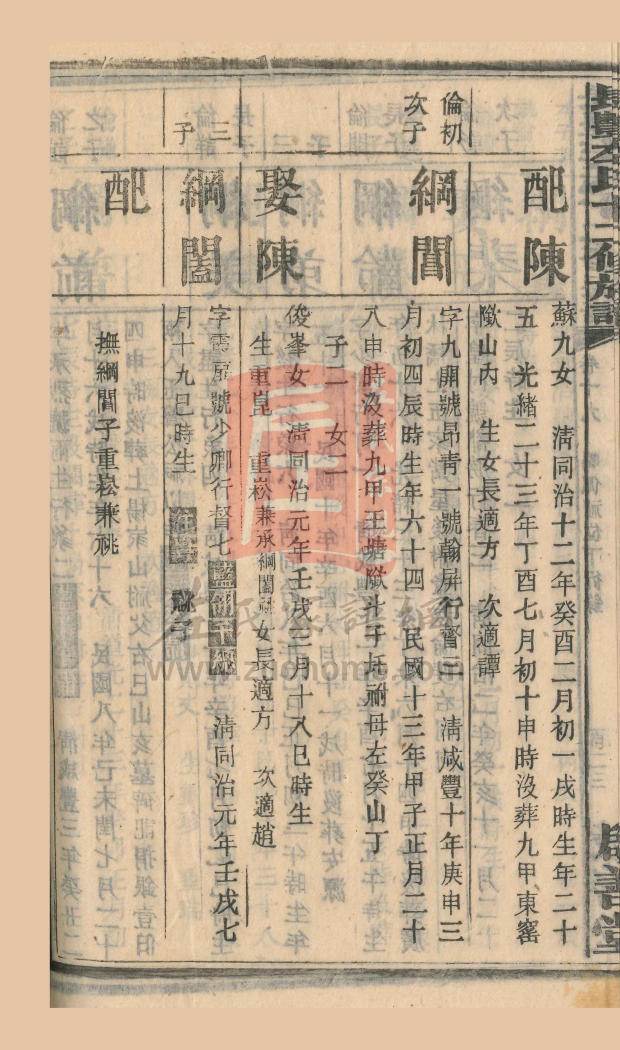 配陳
蘇九女 淸同治十二年癸酉二月初一戌時生年二十
五 光緒二十三年丁酉七月初十申時沒葬九甲東窰
㘰山內 生女長適方 次適譚
倫初
次子
綱誾
字九開號昂靑一號翰屏行督三 淸咸豐十年庚申三
月初四辰時生年六十四 民國十三年甲子正月二十
八申時沒葬九甲王塘㘰斗子坵祔母左癸山丁
子二 女二
娶陳
俊峯女 淸同治元年壬戌三月十八巳時生
生重崑 重崧兼承綱闔祧 女長適方 次適趙
三
子
綱闔
字雲扇號少卿行督七 淸同治元年壬戌七
月十九巳時生
配
撫綱誾子重崧兼祧
啟善堂
www.zuohome.com